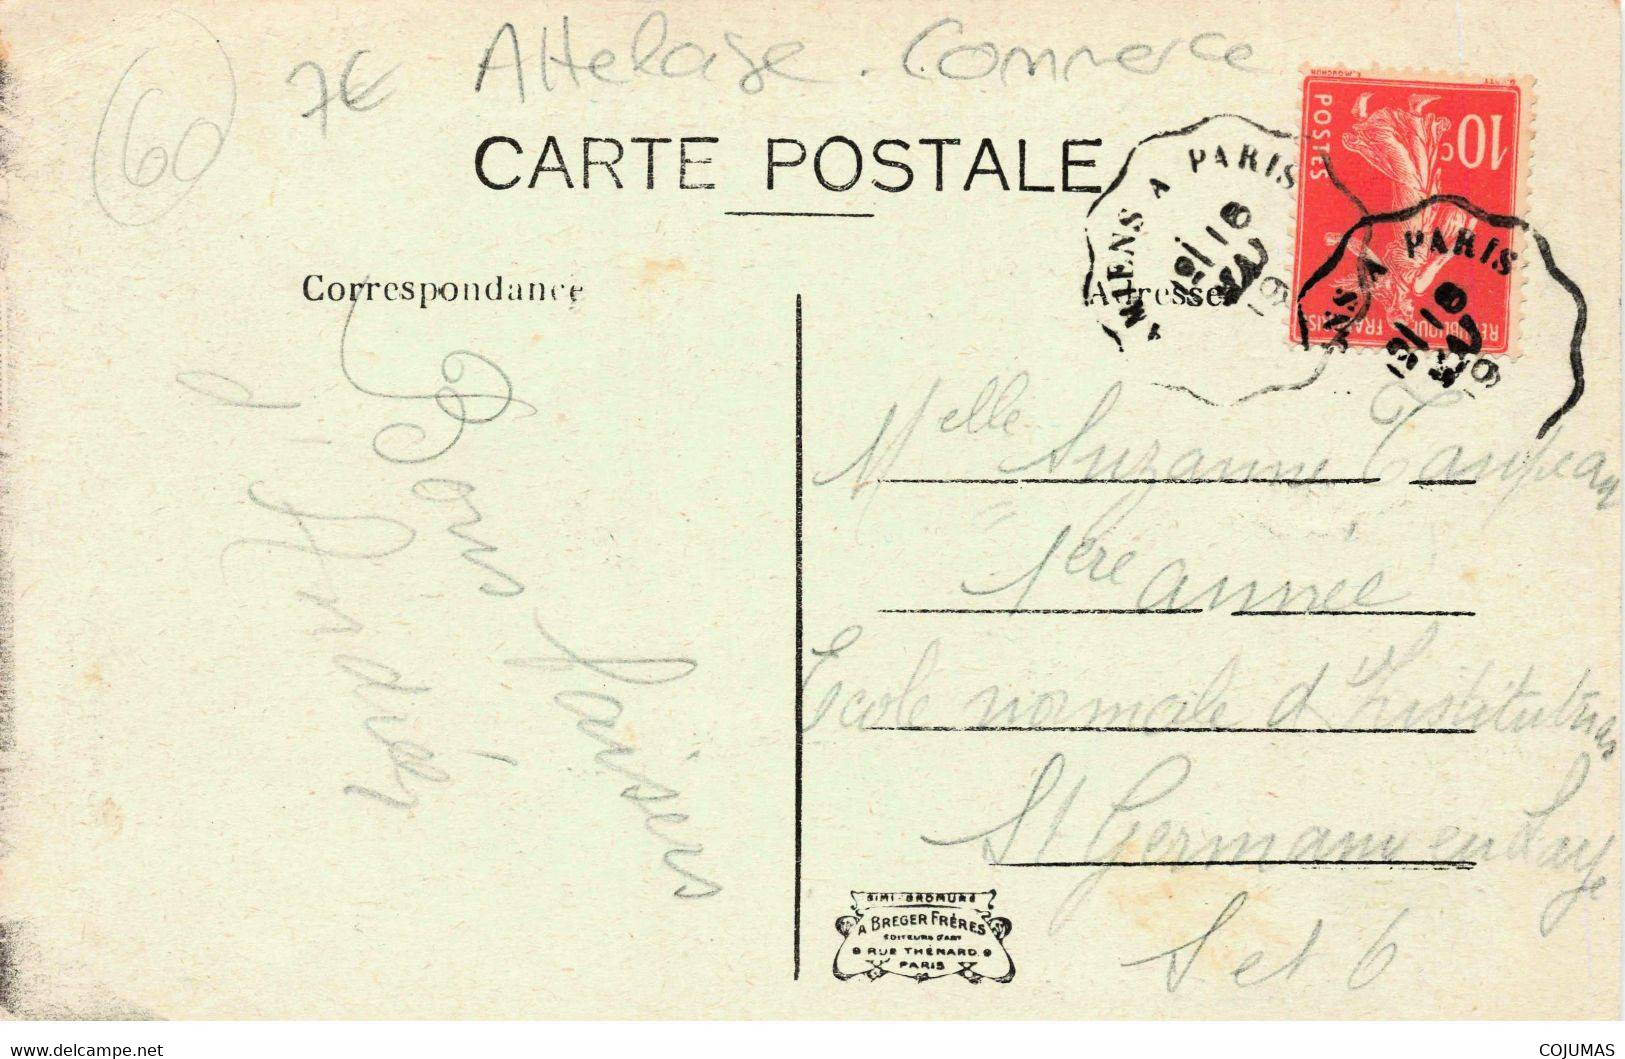 60
7€ Attelage. Commerce
CARTE POSTALE
Correspondance
Adresse
AMIENS A PARIS
10c
POSTES
REPUBLIQUE FRANÇAISE
E. MOUCHON
A PARIS
Bons baisers
d'Andrée
Melle Suzanne Taupeau
1ère année
Ecole normale d'Institutrices
St Germain en Laye
Set 6
SIMI-BROMURE
A BREGER FRÈRES
EDITEURS D'ART
9 RUE THÉNARD 9
PARIS
www.delcampe.net
COJUMAS